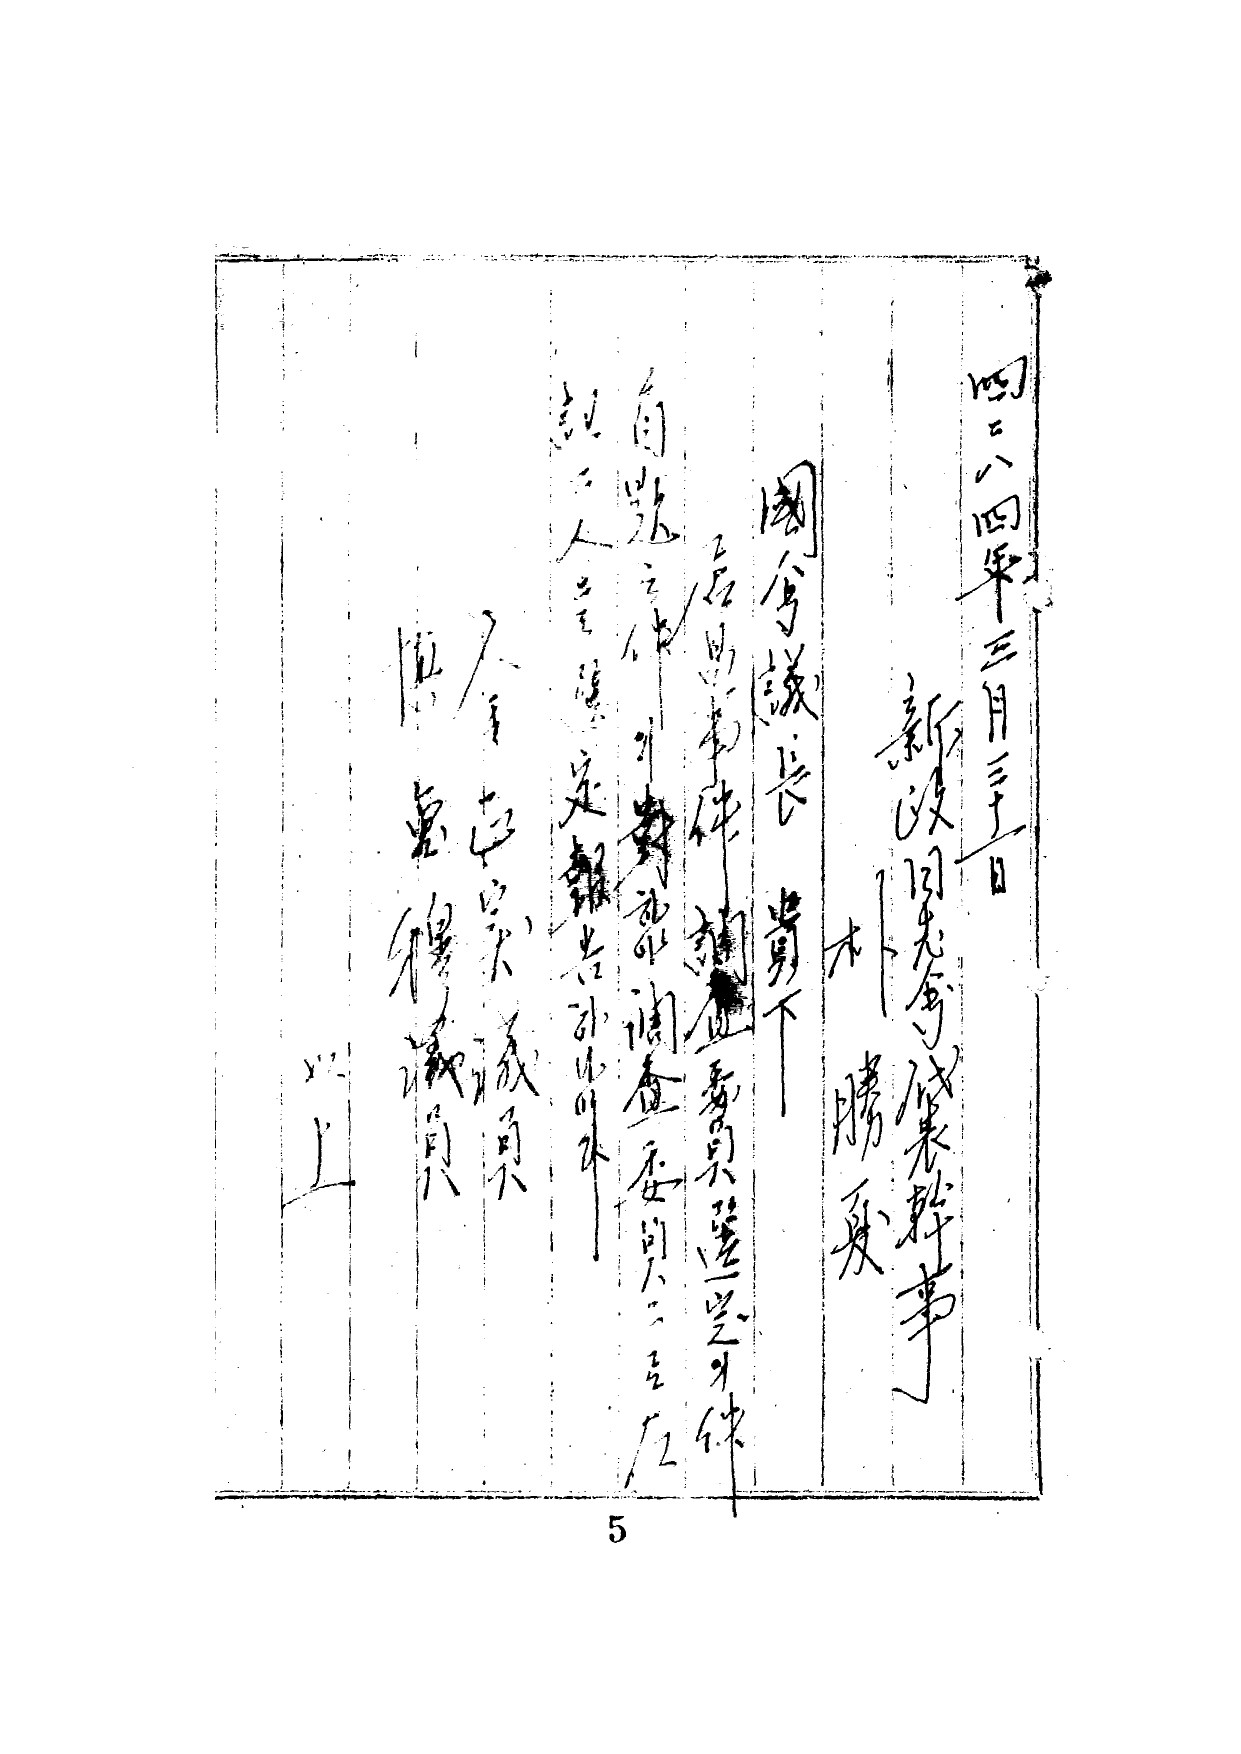 四二八四年三月三十一日
新政同志會代表幹事
朴勝夏
國會議長 貴下
居昌事件調査委員選定의件
首題之件에對하야調査委員으로左
記二人을選定報告하나이다
金正實議員
愼重穆議員
以上
5